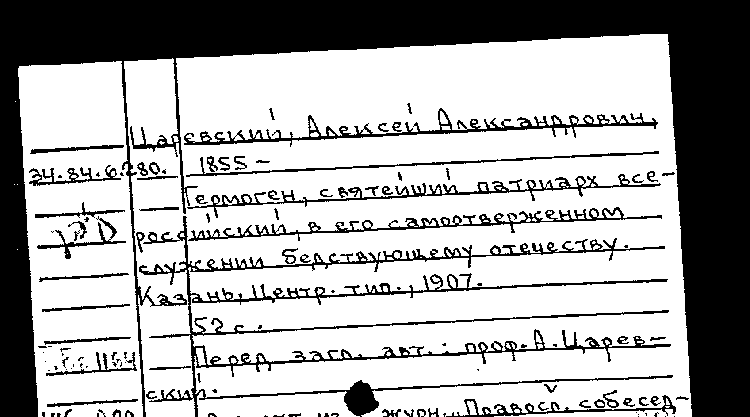 Царевский, Алексей Александрович,
34.84.6.280. 1855 –
Гермоген, святейший патриарх все-
российский, в его самоотверженном
служении бедствующему отечеству.
Казань, Центр. тип., 1907.
52 с.
1164 Перед загл. авт.: проф. А. Царев-
ский.
из журн. „Правосл. собесед-